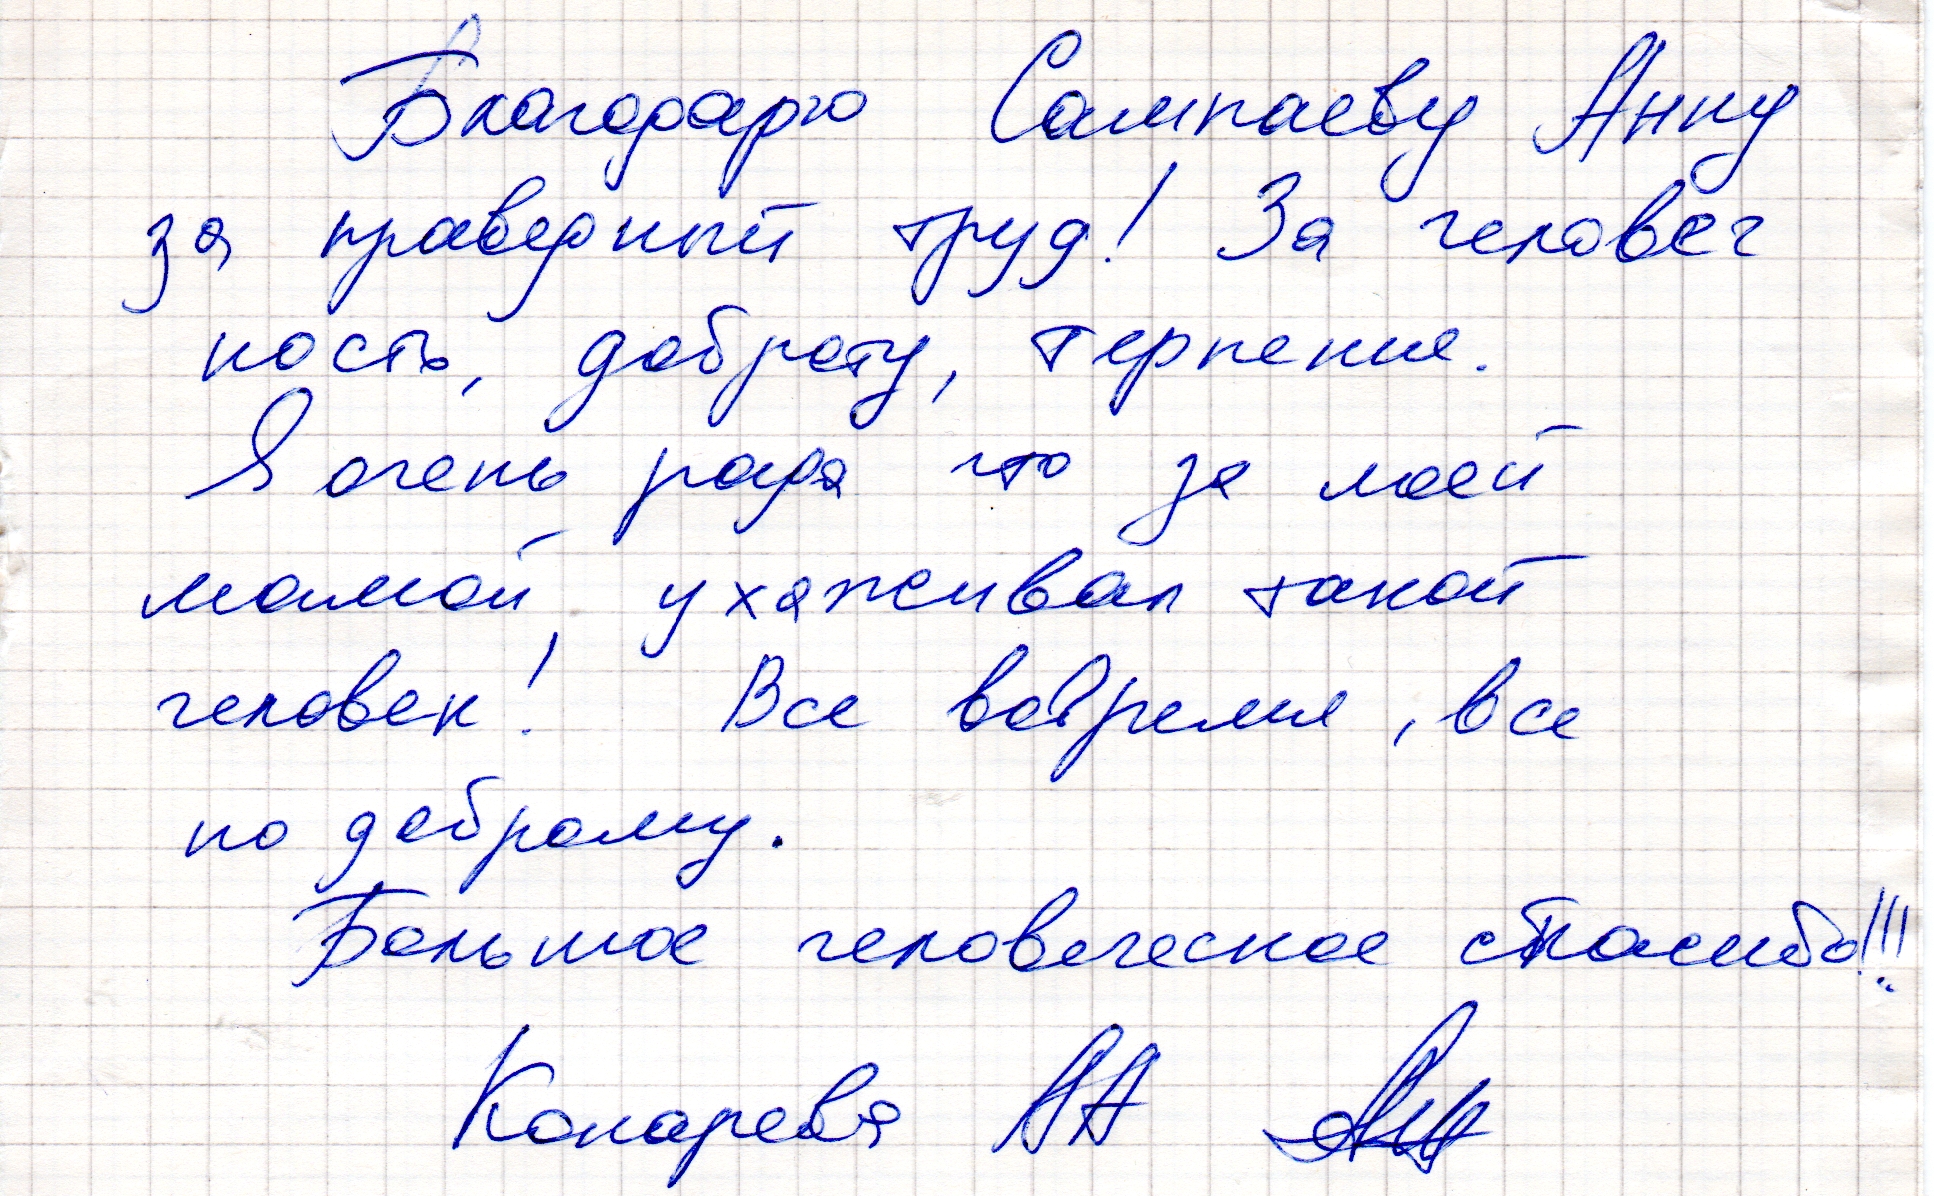 Благодарю Сампаеву Анну
за праведный труд! За человеч
ность, доброту, терпение.
Я очень рада что за моей
мамой, ухаживал такой
человек! Все вовремя, все
по доброму.
Большое человеческое спасибо!!!
Конарева АА